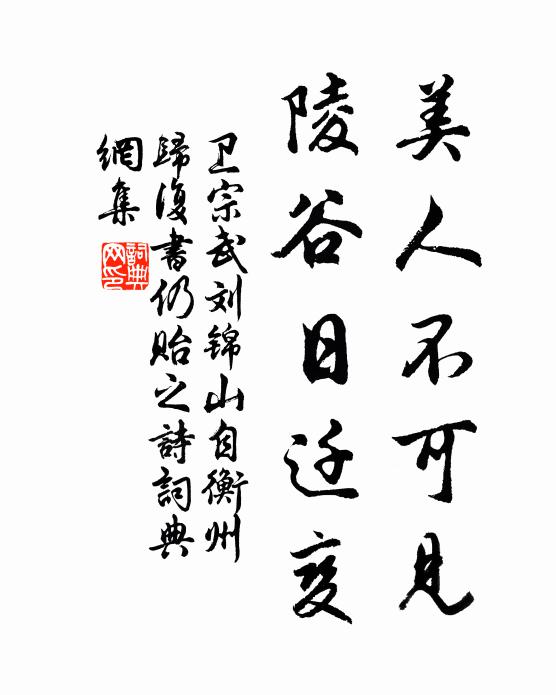 美人不可見
陵谷日迁变
卫宗武刘锦山自衡州
歸復書仍贻之詩詞典
網集
詞典網印